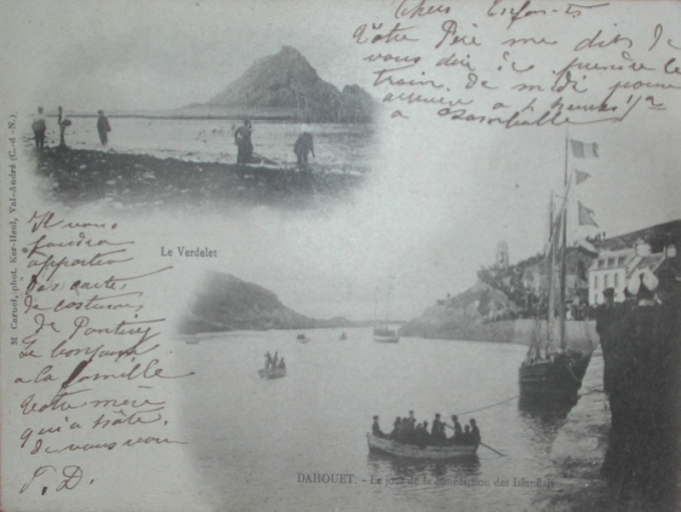 Chers Enfants
Votre Père me dit de
vous dire de prendre le
train de midi pour
arriver a 4 heures 1/2
a Lamballe
Il vous
faudra
apporter
des cartes
de costumes
de Pontivy
Le bonjour
a la famille
Votre mère
qui a hâte
de vous voir
F. D.
Le Verdelet
M Caruel, phot. Ker-Heol, Val-André (C.-d.-N.)
DAHOUET. - Le jour de la Bénédiction des Islandais